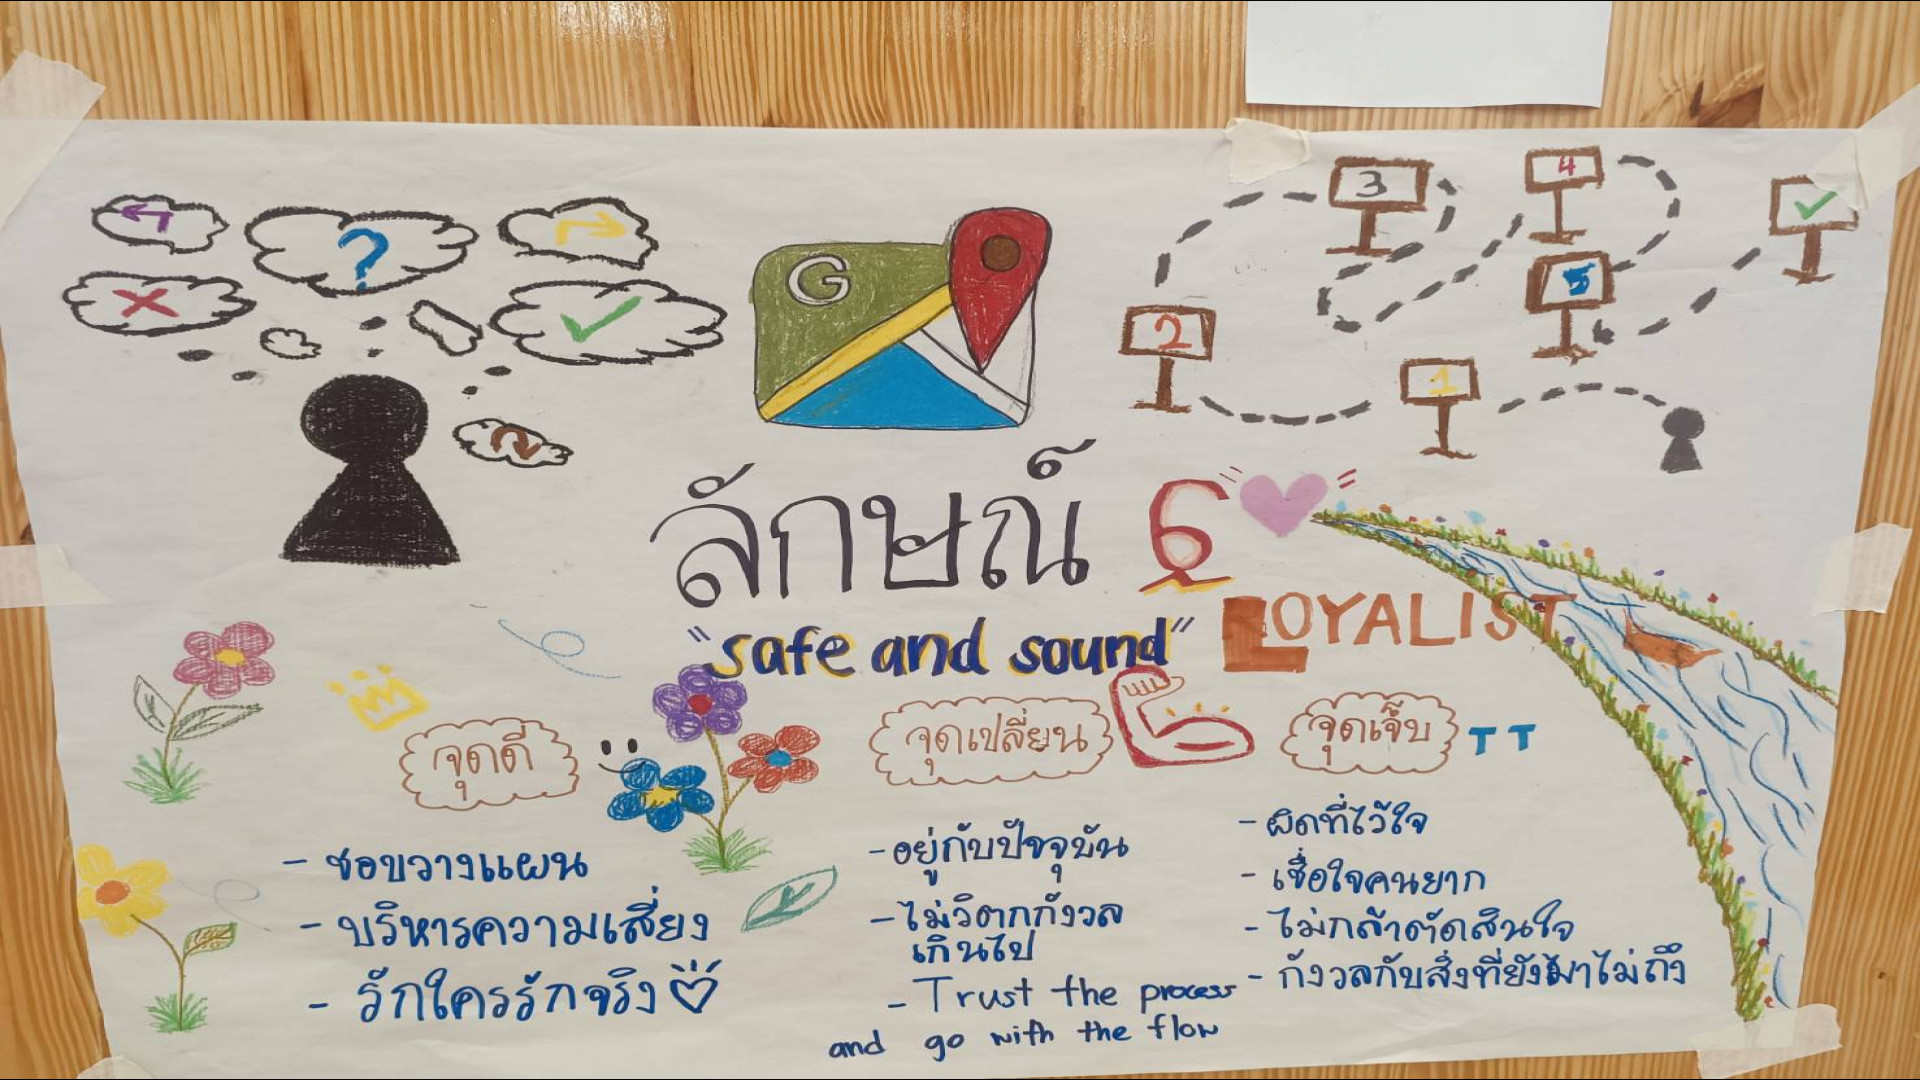 G
3
4
2
5
1
ลักษณ์ 6
"safe and sound"
LOYALIST
จุดดี
- ชอบวางแผน
- บริหารความเสี่ยง
- รักใครรักจริง
จุดเปลี่ยน
- อยู่กับปัจจุบัน
- ไม่วิตกกังวล
เกินไป
- Trust the process
and go with the flow
จุดเจ็บ TT
- ผิดที่ไว้ใจ
- เชื่อใจคนยาก
- ไม่กล้าตัดสินใจ
- กังวลกับสิ่งที่ยังมาไม่ถึง